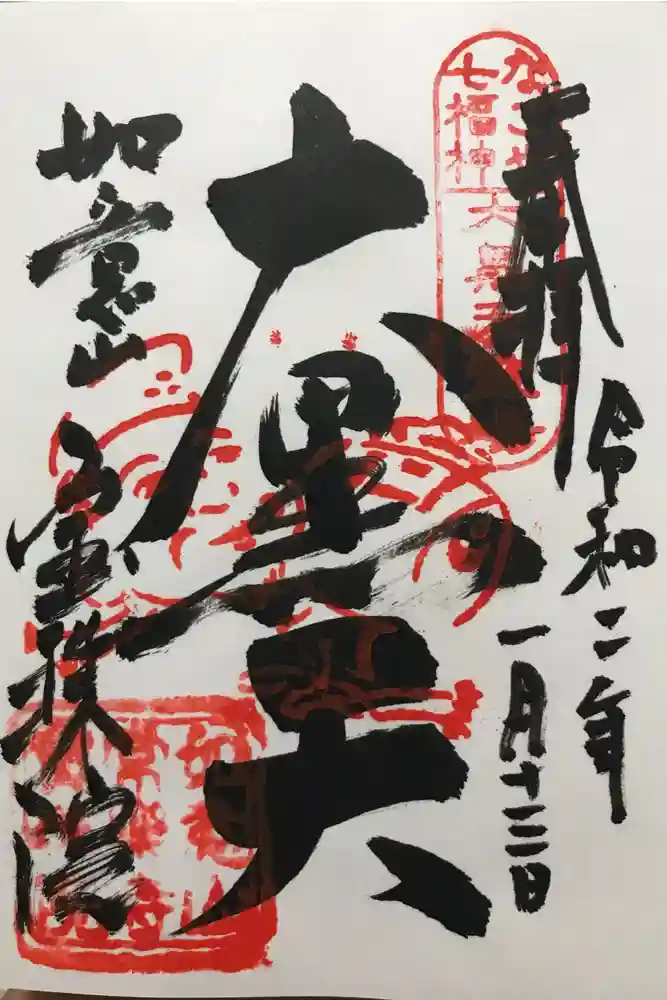 奉拝
令和二年
一月十三日
なごや
七福神
大黒天
大黒天
如意山
宝珠院